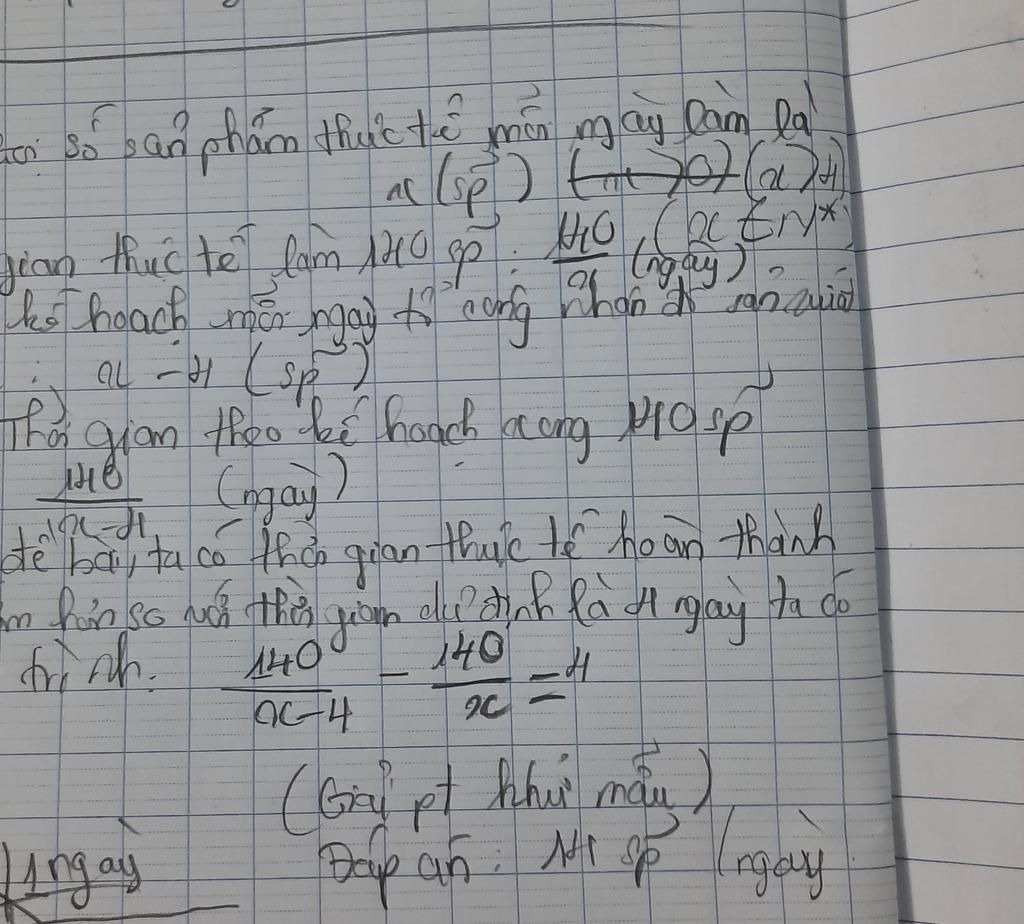 số sản phẩm thực tế mỗi ngày làm là
x (sp) (x > 4)
gian thực tế làm 140 sp : 140/x (ngày) (x ∈ N*)
kế hoạch mỗi ngày tổ công nhân đó sản xuất
: x - 4 (sp)
Thời gian theo kế hoạch xong 140 sp
140/x-4 (ngày)
đề bài, ta có thời gian thực tế hoàn thành
hơn so với thời gian dự định là 4 ngày ta có
trình. 140/x-4 - 140/x = 4
(Giải pt khử mẫu)
1 ngày Đáp án: 14 sp (ngày